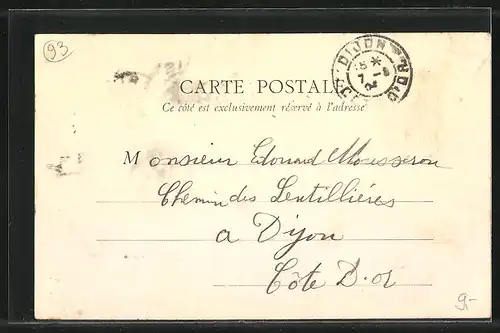 93
DIJON
CÔTE D'OR
CARTE POSTALE
Ce côté est exclusivement réservé à l'adresse
Monsieur Edouard Mousseron
Chemin des Lentillières
a Dijon
Côte D'or
9.-